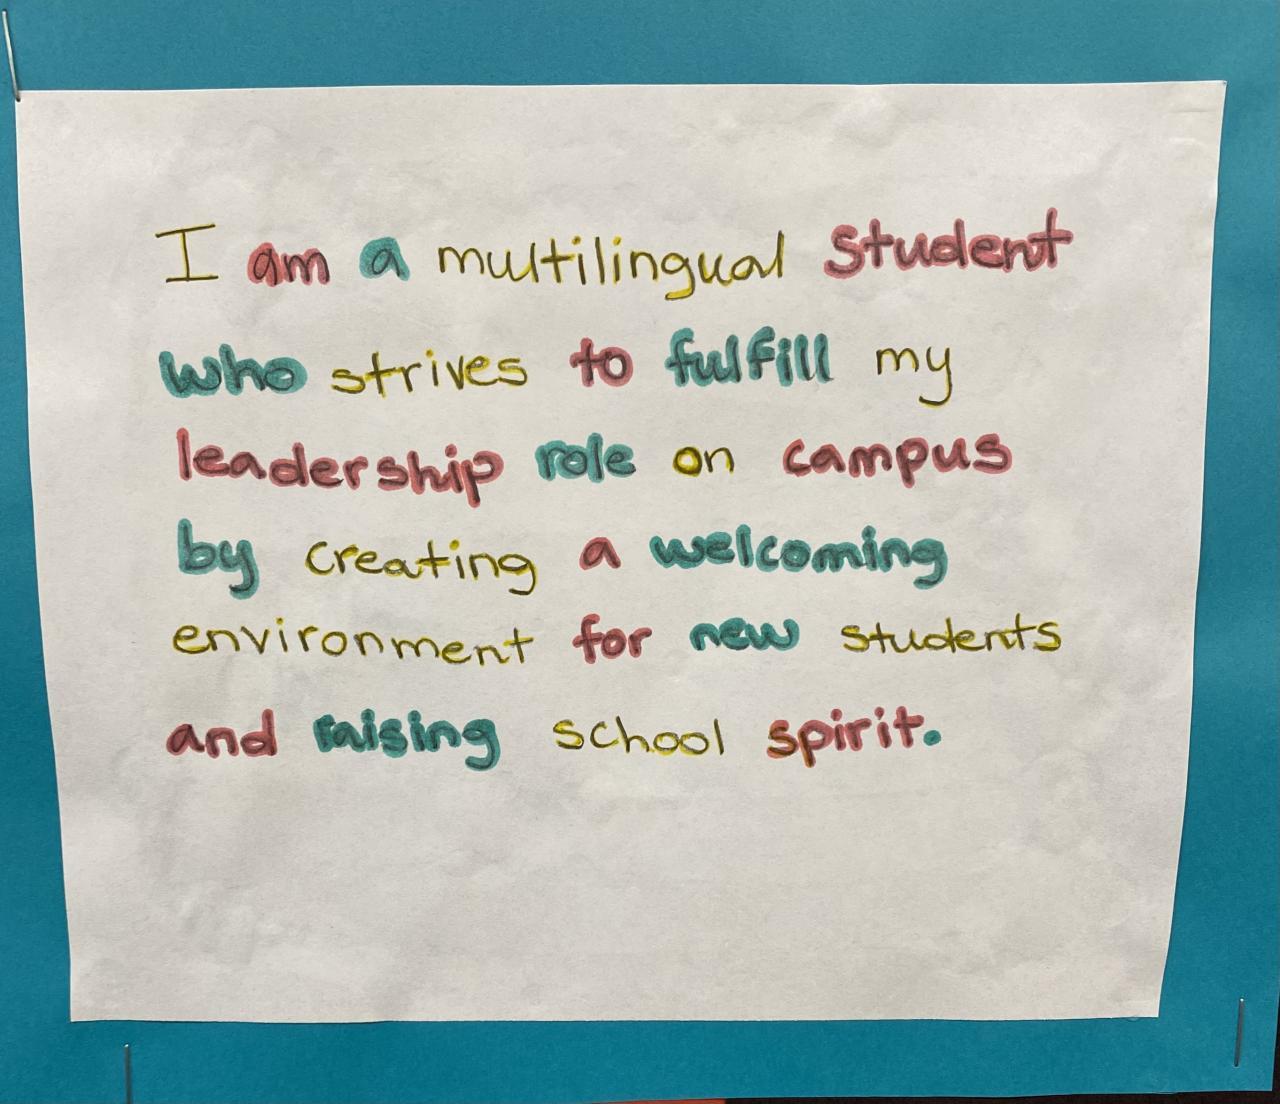 I am a multilingual student
who strives to fulfill my
leadership role on campus
by creating a welcoming
environment for new students
and raising school spirit.